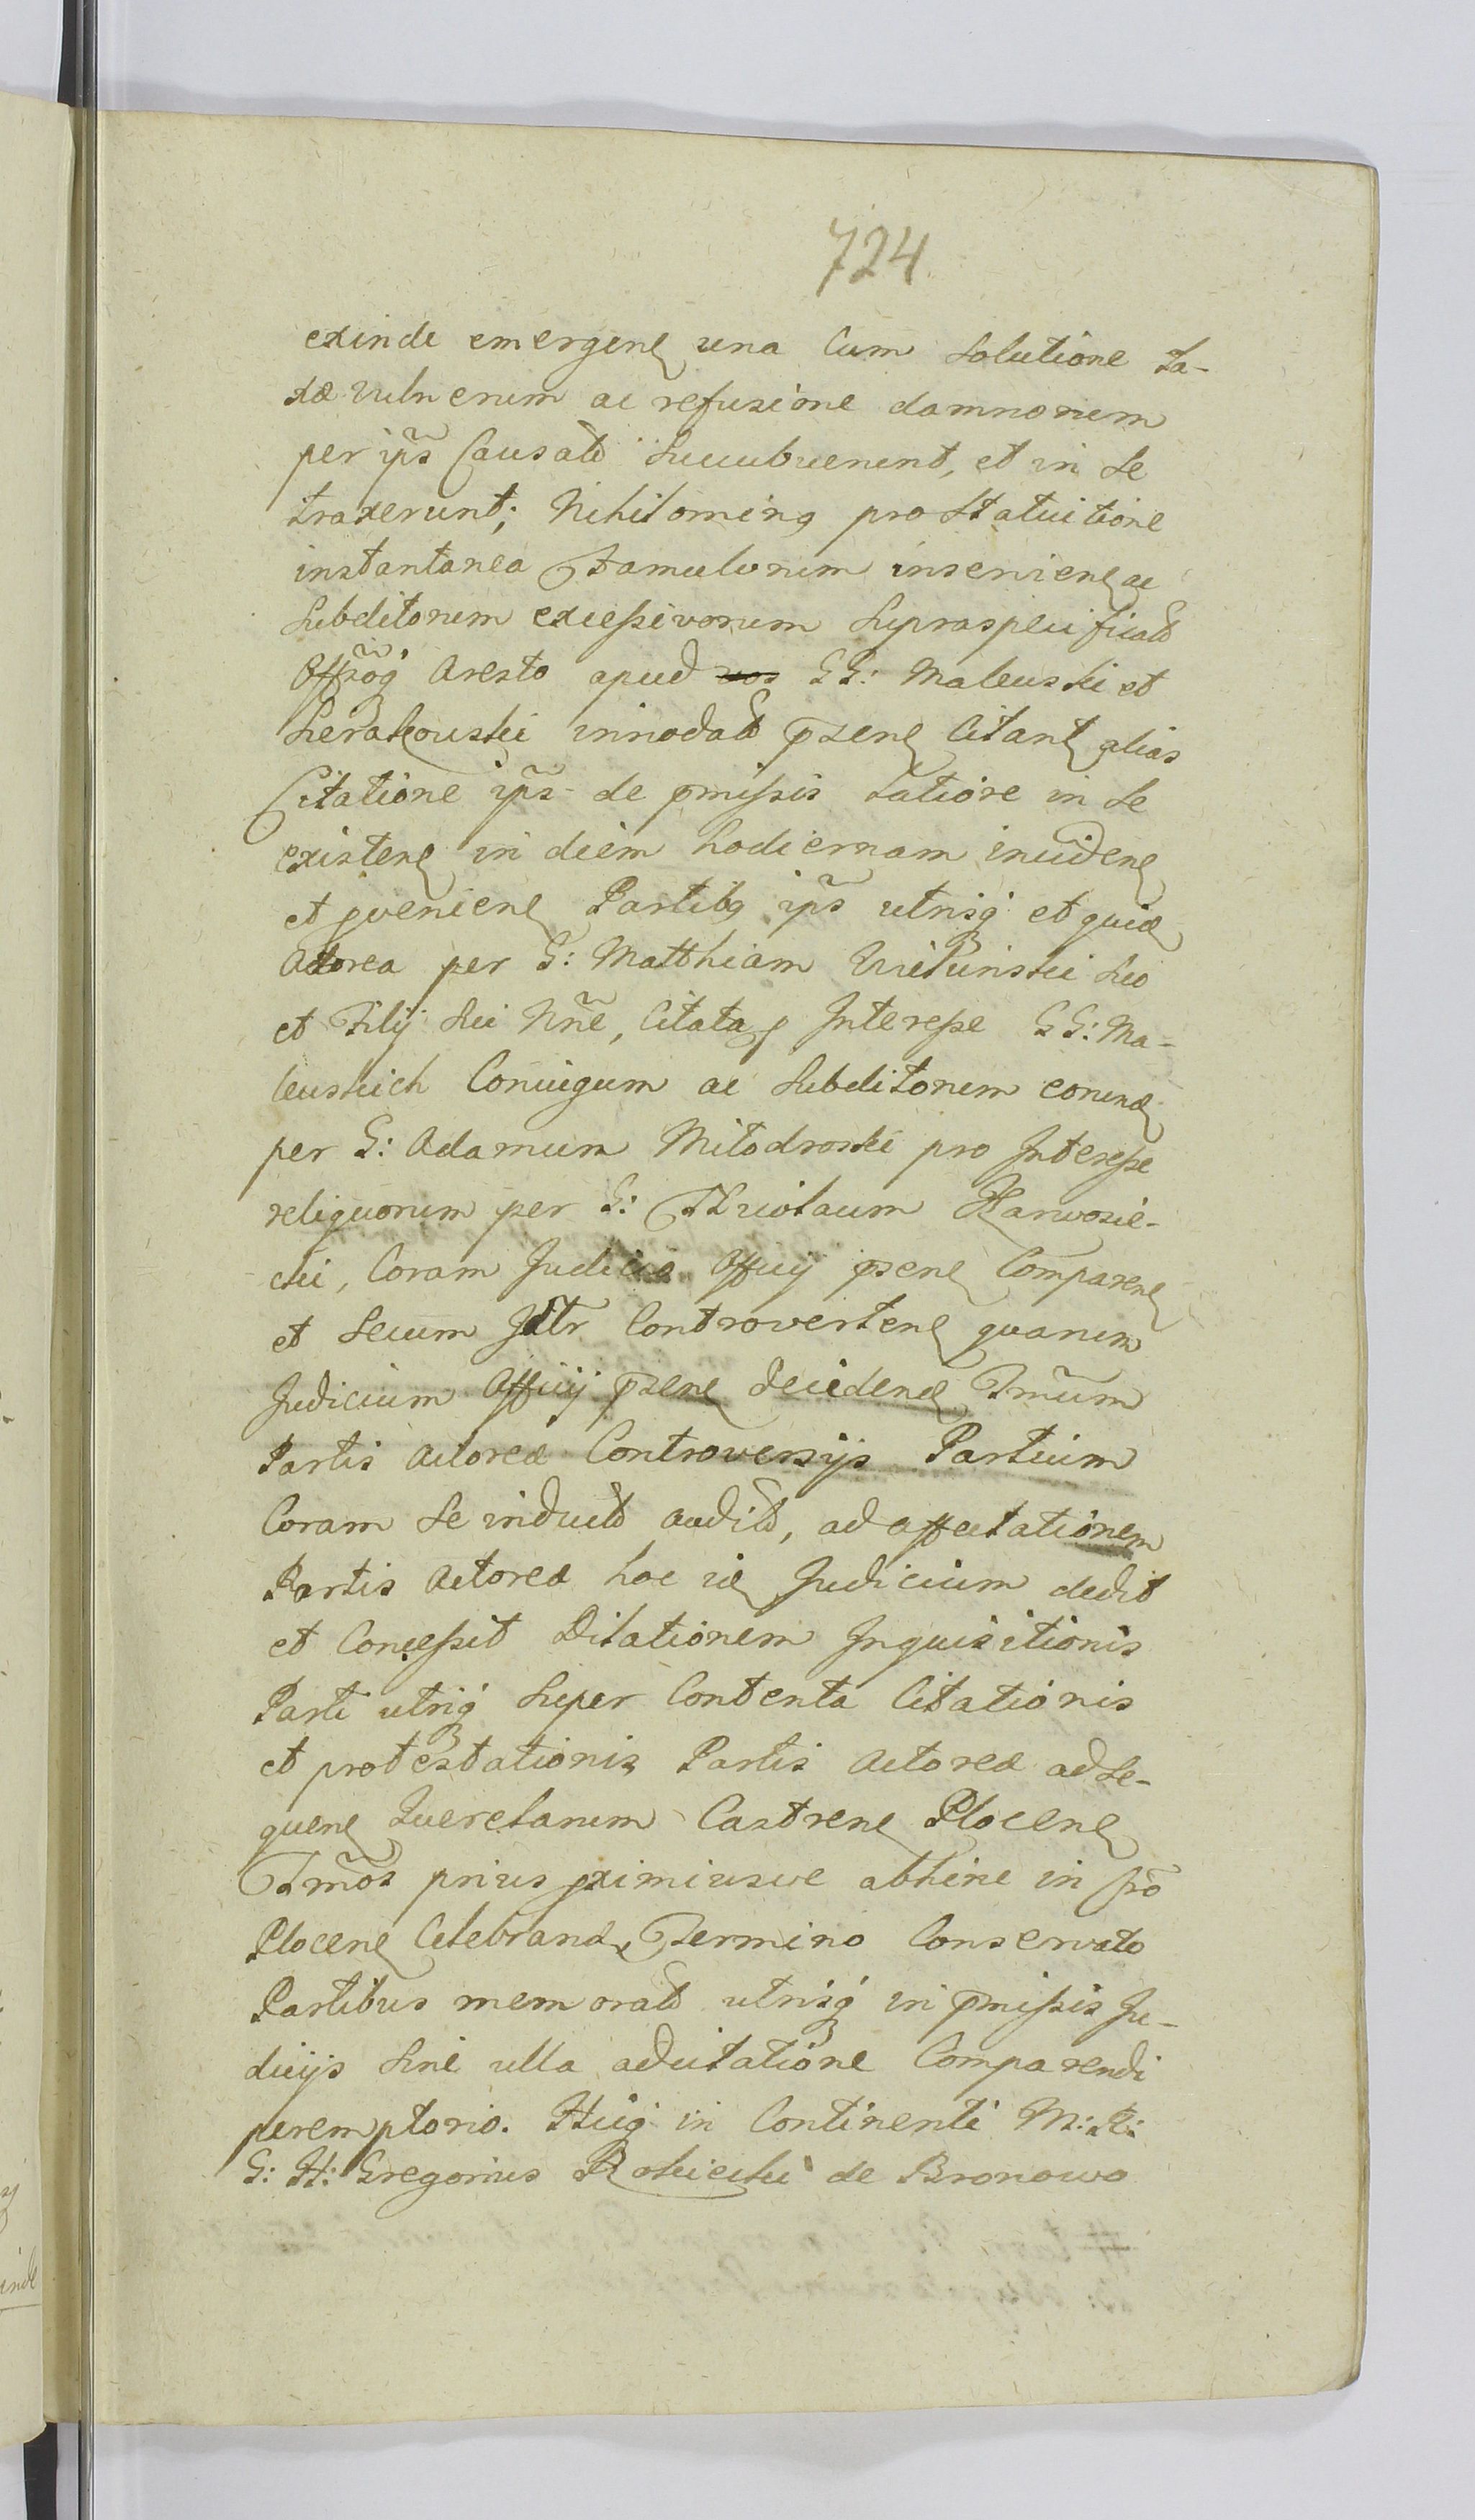 724
exinde emergen una Cum Solutione ta-
xæ vulnerum ac refusione damnorum
per ip̃s Causatꝭ Succubuerunt, et in Se
traxerunt; Nihilominꝯ pro Statuitione
instantanea Famulorum inservienꝭ ac
Subditorum excessivorum Supraspecificatꝭ
Arresto apud vos GG: Maleuski et
Sierakouski innodatꝭ pꝛsenꝭ Citanꝭ alias
Citatione ip̃s de p̄missis Latiore in Se
existenꝭ in diem hodiernam incidenꝭ
et pvenienꝭ Partibꝯ ip̃s utrisqꝫ et quidꝭ
Actorea per G: Matthiam Suo
et Filij Sui Nñe, Citata ꝓ Interesse GG: Ma-
leuskich Coniugum ac Subditorum eorundꝭ
per G: Adamum Milodroski pro Interesse
reliquorum per G: Karwosie-
cki, Coram Judicio Officij pꝛsenꝭ Comparenꝭ
et Secum Controvertenꝭ quarum
Judicium Officij pꝛsenꝭ decidendꝭ Tm̃um
Partis Actoreæ Controversijs Partium
Coram Se inductꝭ auditꝭ, ad affectationem
Partis Actoreæ hoc idꝭ Judicium dedit
et Concessit Dilationem Inquisitionis
Parti utriqꝫ Super Contenta Citationis
et protestationis Partis Actoreæ ad Se-
quenꝭ Querelarum Castrenꝭ Plocenꝭ
Tm̃os prius ꝓximiusve abhinc in fr̃o
Plocenꝭ Celebrandꝭ, Termino Conservato
Partibus memoratꝭ utrisqꝫ in p̄missis Ju-
dicijs Sine ulla adcitatione Comparendi
peremptorio. Huicqꝫ in Continenti M: R:
G: H: Gregorius Rokicki de Bronowo